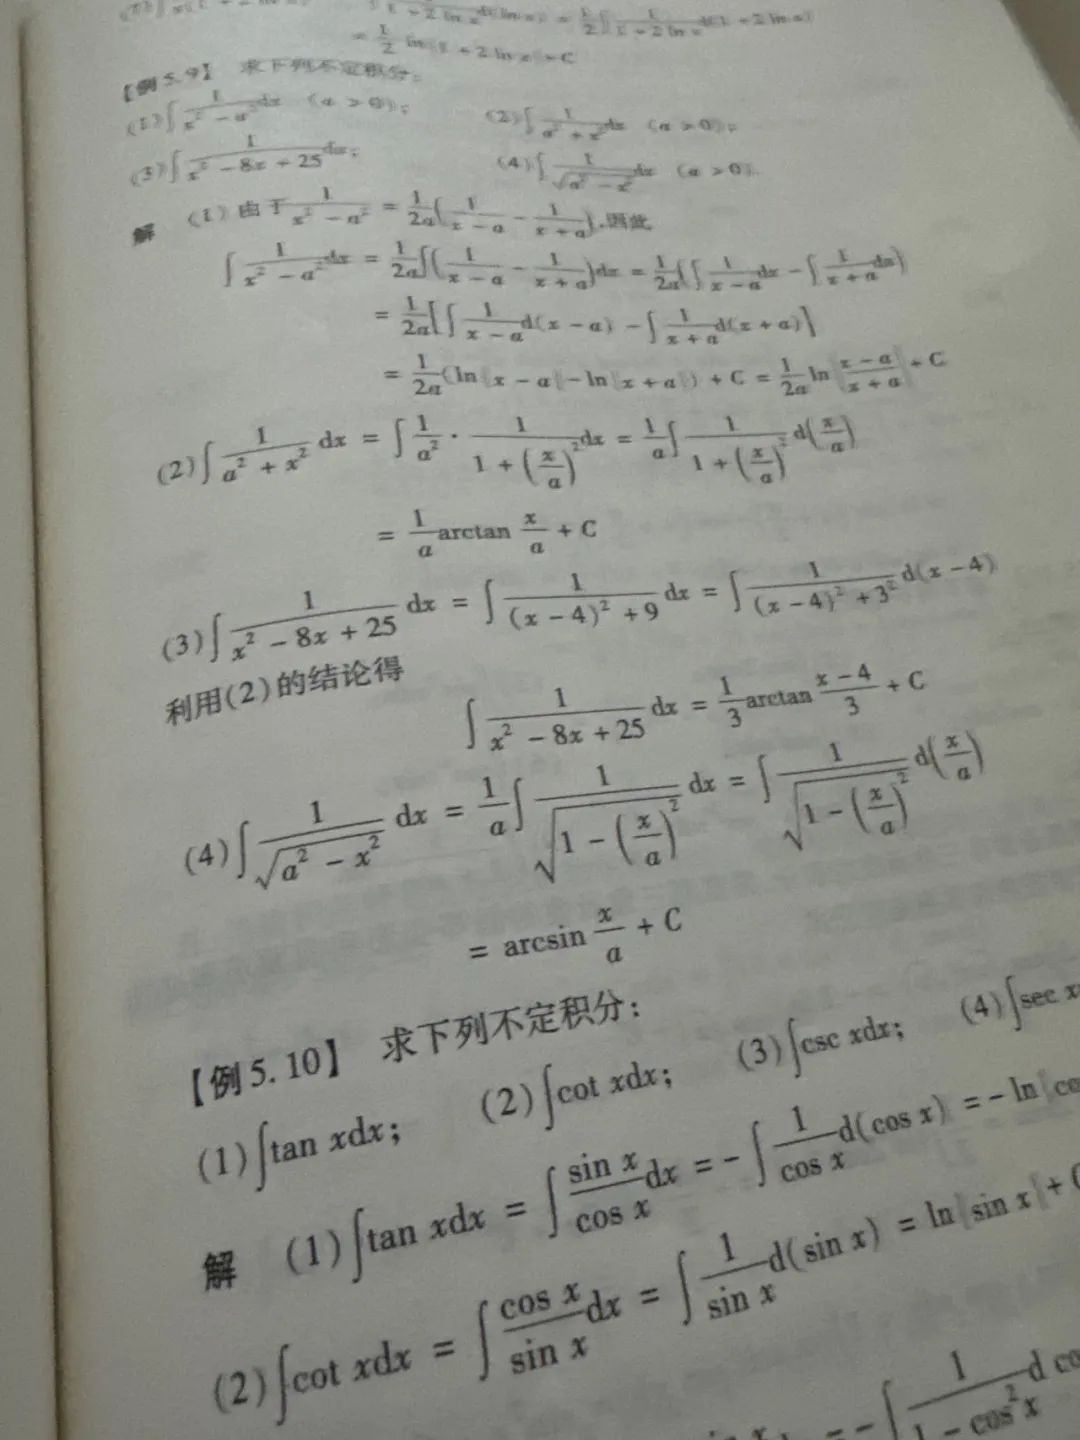 = 1/2 ln|1 + 2 ln x| + C
【例5.9】 求下列不定积分:
(1)∫ 1/(x² - a²) dx (a > 0); (2)∫ 1/(a² + x²) dx (a > 0);
(3)∫ 1/(x² - 8x + 25) dx; (4)∫ 1/√(a² - x²) dx (a > 0).
解 (1)由于 1/(x² - a²) = 1/2a (1/(x - a) - 1/(x + a)),因此
∫ 1/(x² - a²) dx = 1/2a ∫(1/(x - a) - 1/(x + a))dx = 1/2a (∫ 1/(x - a) dx - ∫ 1/(x + a) dx)
= 1/2a [∫ 1/(x - a) d(x - a) - ∫ 1/(x + a) d(x + a)]
= 1/2a (ln|x - a| - ln|x + a|) + C = 1/2a ln|(x - a)/(x + a)| + C
(2)∫ 1/(a² + x²) dx = ∫ 1/a² · 1/(1 + (x/a)²) dx = 1/a ∫ 1/(1 + (x/a)²) d(x/a)
= 1/a arctan x/a + C
(3)∫ 1/(x² - 8x + 25) dx = ∫ 1/((x - 4)² + 9) dx = ∫ 1/((x - 4)² + 3²) d(x - 4)
利用(2)的结论得
∫ 1/(x² - 8x + 25) dx = 1/3 arctan (x - 4)/3 + C
(4)∫ 1/√(a² - x²) dx = 1/a ∫ 1/√(1 - (x/a)²) dx = ∫ 1/√(1 - (x/a)²) d(x/a)
= arcsin x/a + C
【例5.10】 求下列不定积分:
(1)∫tan xdx; (2)∫cot xdx; (3)∫csc xdx; (4)∫sec x
解 (1)∫tan xdx = ∫ sin x/cos x dx = - ∫ 1/cos x d(cos x) = - ln|co
(2)∫cot xdx = ∫ cos x/sin x dx = ∫ 1/sin x d(sin x) = ln|sin x| + C
= - ∫ 1/(1 - cos²x) d co